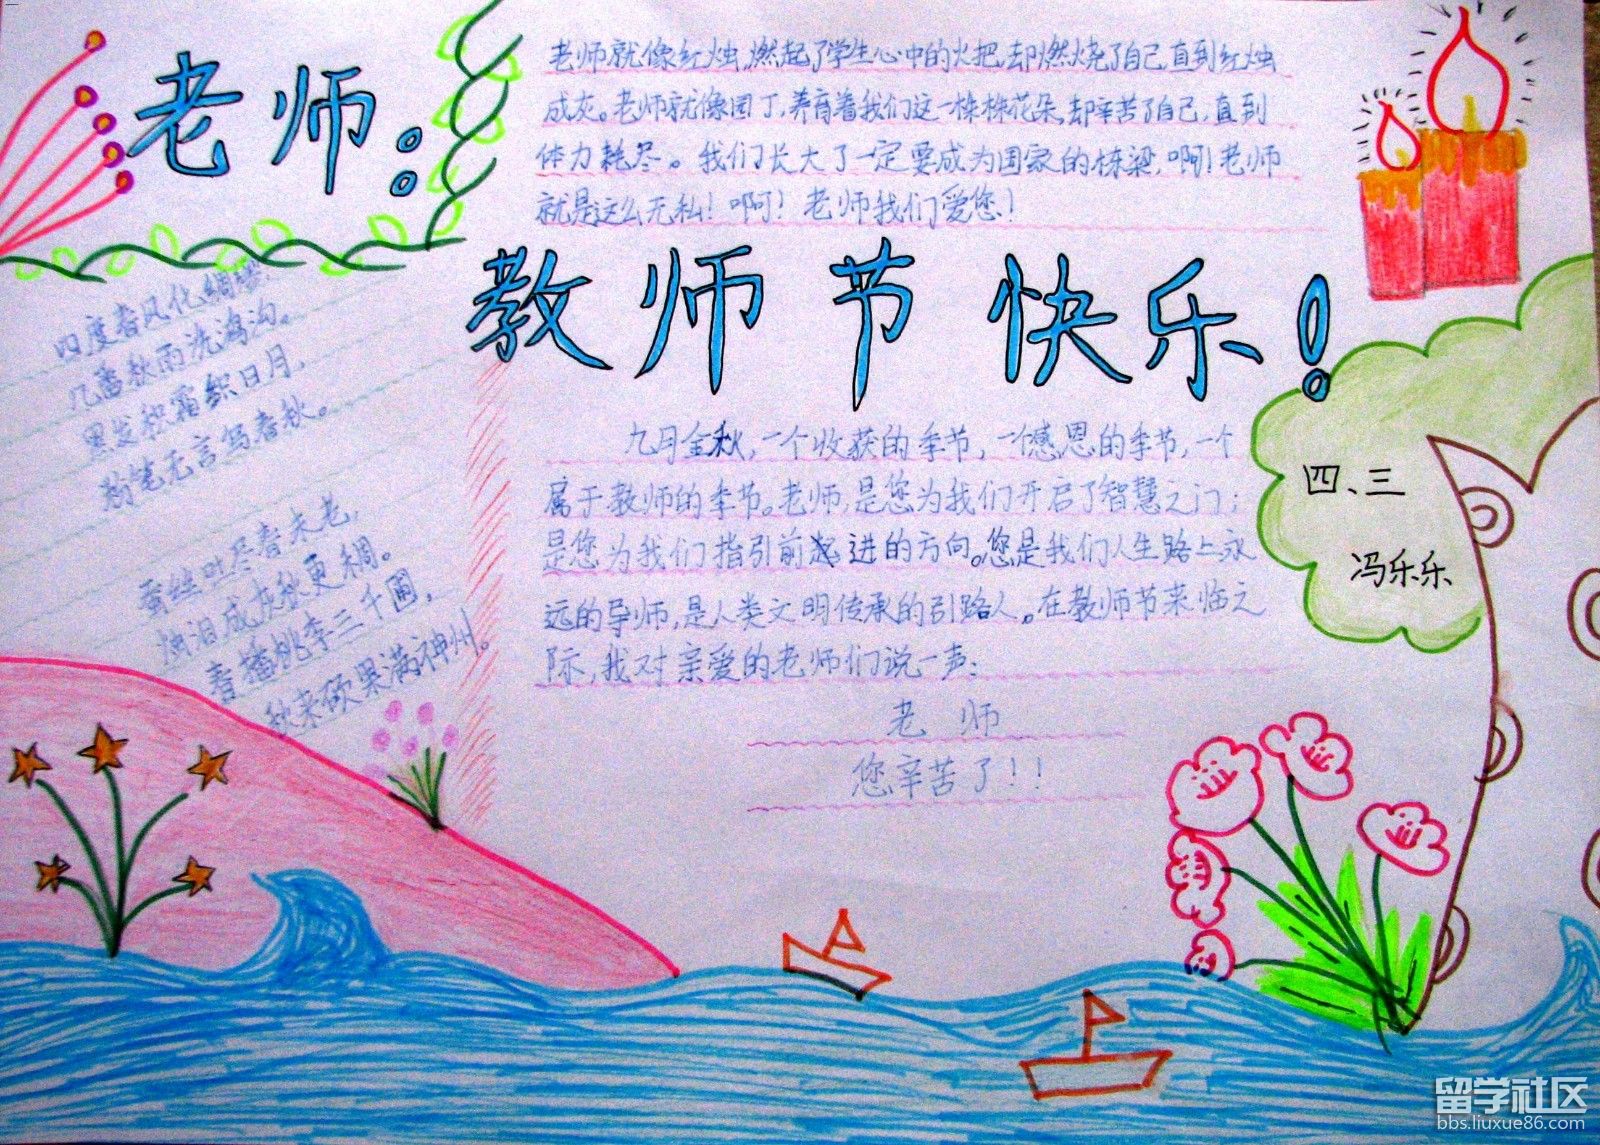 老师：
老师就像红烛,燃起了学生心中的火把,却燃烧了自己,直到红烛
成灰。老师就像园丁,养育着我们这一株株花朵,却辛苦了自己,直到
体力耗尽。我们长大了一定要成为国家的栋梁,啊!老师
就是这么无私!啊!老师我们爱您!
教师节快乐!
四度春风化绸缪,
几番秋雨洗鸿沟。
黑发积霜织日月,
粉笔无言写春秋。
蚕丝吐尽春未老,
烛泪成灰秋更稠。
春播桃李三千圃,
秋来硕果满神州。
九月金秋,一个收获的季节,一个感恩的季节,一个
属于教师的季节。老师,是您为我们开启了智慧之门;
是您为我们指引前进的方向。您是我们人生路上永
远的导师,是人类文明传承的引路人。在教师节来临之
际,我对亲爱的老师们说一声:
老师
您辛苦了!!
四、三
冯乐乐
留学社区
bbs.liuxue86.com